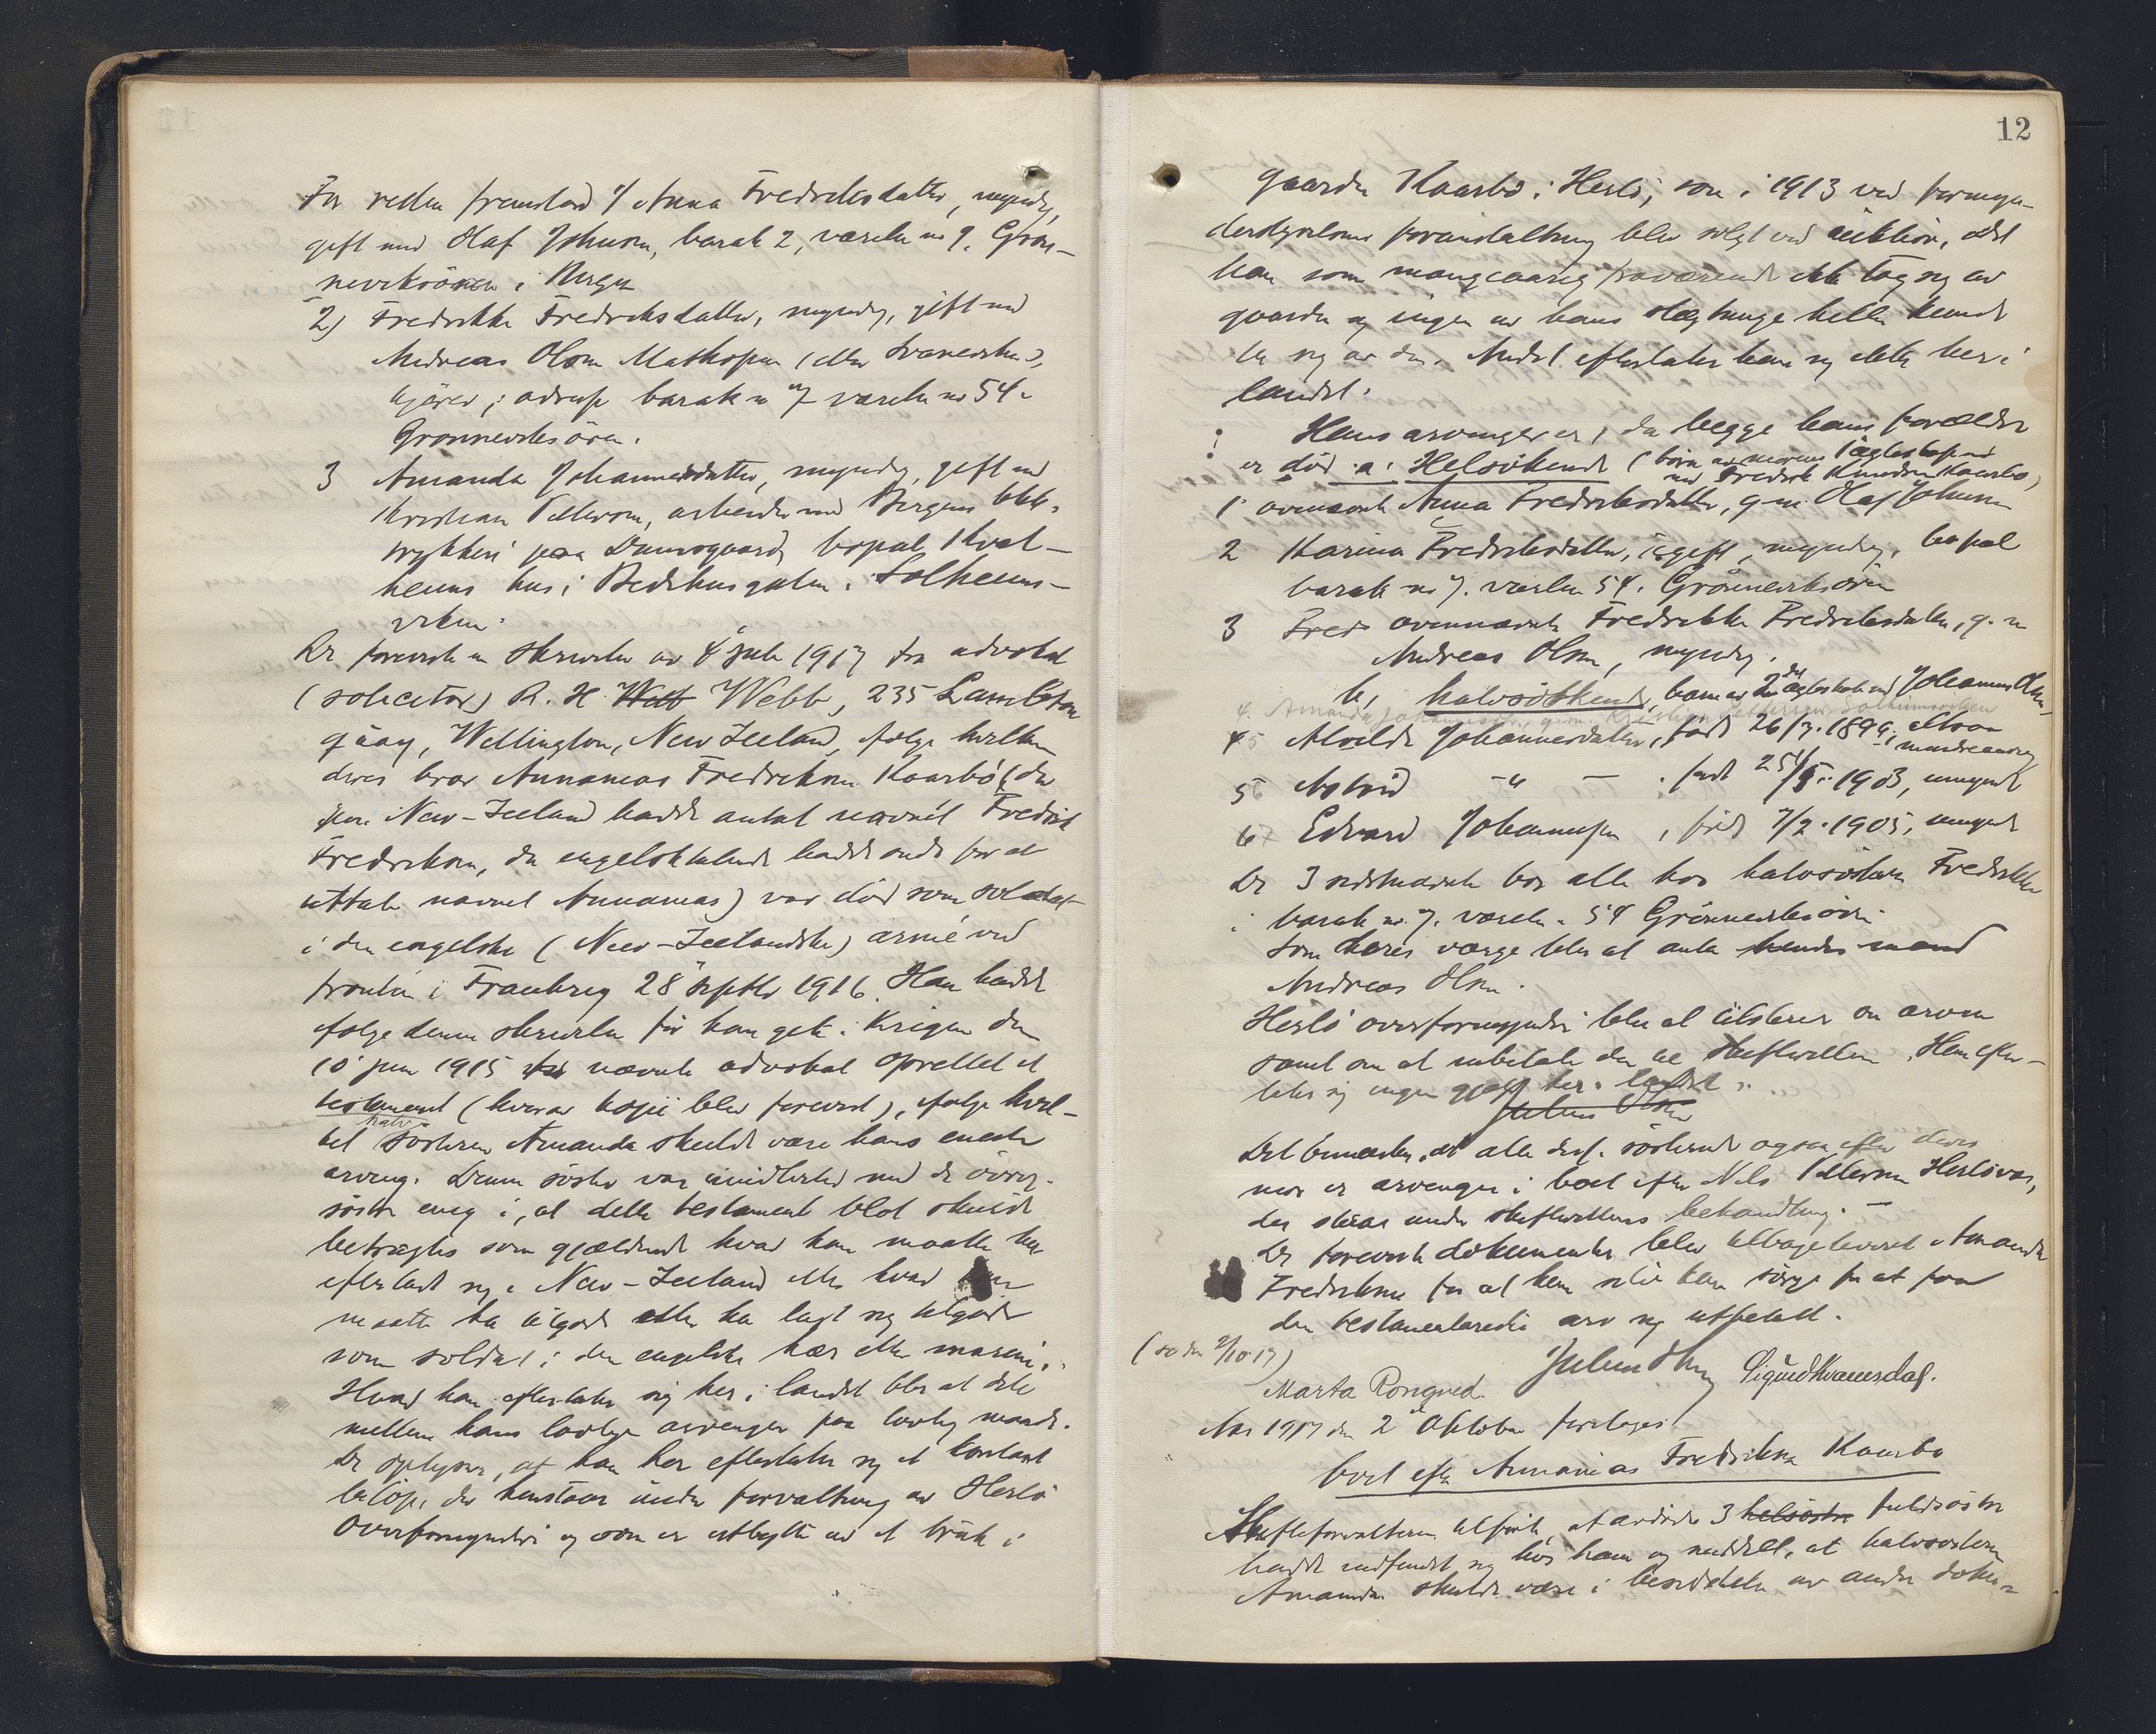 For retten fremstod 1/ Anna Fredriksdatter, myndig,
gift med Olaf Johnsen, barak 2, værelse no 9. Grøn-
neviksøren i Bergen
2) Fredrikke Fredriksdatter, myndig, gift med
Andreas Olsen Mathopen (eller
kjører, adresse barak no 7 værelse no 54.
Grønneviksøren.
3 Amanda Johannesdatter, myndig, gift med
Kristian Pettersen, arbeider ved Bergens blik-
trykkeri paa Damsgaard, bopæl Kval-
heims hus i Bedehusgaten. Solheims-
viken.
De foreviste en skrivelse av 4 juli 1917 fra advokat
(solicitor) R. H. Webb, 235 Lambton
quay, Wellington, New Zeeland, ifølge hvilken
deres bror Annanias Fredriksen Kaarbø (der
paa New-Zeeland hadde antat navnet Fredrik
Fredriksen, da engelsktalende hadde ondt for at
uttale navnet Annanias) var død som soldat
i den engelske (New-Zeelandske) armé ved
fronten i Frankrig 28 septbr 1916. Han hadde
ifølge denne skrivelse før han gik i krigen den
10 juni 1915 hos nævnte advokat oprettet et
testament (hvorav kopi blev forevist), ifølge hvil-
ket halv-søsteren Amanda skulde være hans eneste
arving. Denne søster var imidlertid med de øvrige
søstre enig i, at dette testament blot skulde
betragtes som gjældende hvad han maatte ha
efterladt sig i New-Zeeland eller hvad han
maatte ha tilgode eller ha lagt sig tilgode
som soldat i den engelske hær eller marine.
Hvad han efterlater sig her i landet blir at dele
mellem hans lovlige arvinger paa lovlig maade.
De oplyser, at han her efterlater sig et kontant
beløp, der henstaar under forvaltning av Herlø
Overformynderi og som er utbytte av et bruk i
12
gaarden Kaarbø i Herlø, som i 1913 ved formyn-
derstyrelsens foranstaltning blev solgt ved auktion, idet
han som mangeaarig fraværende ikke tog sig av
gaarden og ingen av hans slegtninge heller kunde
ta sig av den. Andet efterlater han sig ikke her i
landet.
Hans arvinger er, da begge hans forældre
er død a. Helsøskende (børn av morens 1 egteskap
med Fredrik Knudsen Kaarbø)
1 ovennævnte Anna Fredriksdatter, g. m. Olaf Johnsen
2 Karina Fredriksdatter, ugift, myndig, bopæl
barak no 7. værelse 54. Grønneviksøren
3 Fred ovennævnte Fredrikke Fredriksdatter, g. m
Andreas Olsen, myndig.
b, halvsøskende, barn av 2det egteskab med Johannes Olsen
4. Amanda Johannesdtr., g.m. Kristian Pettersen, Solheimsviken
45 Alvilde Johannesdatter, født 26/7. 1899, altsaa
mindreaarig
56 Astrid -"- , født 25/5. 1903, umyndig
67 Edvard Johannesen, født 7/2. 1905, umyndig
De 3 sidstnævnte bor alle hos halvsøsteren Fredrikke
i barak no. 7. værelse 54 Grønneviksøren
Som deres værge blev at anta hendes mand
Andreas Olsen.
Herlø overformynderi blev at tilskrive om arven
samt om at indbetale den til skifteretten. Han efter-
later sig ingen gjæld her i landet.
Julius Olsen
Det bemerkes, at alle disse søskende ogsaa efter deres
mor er arvinger i boet efter Nils Pettersen Herløvær,
der staar under skifterettens behandling. –
De foreviste dokumenter blev tilbageleveret Amanda
Fredriksen for at hun selv kan sørge for at faa
den testamentariske arv sig utbetalt.
(se den 2/10 17)
Marta Rongved. Julius Olsen Sigurd Kvamsdal.
Aar 1917 den 2 oktober foretoges
boet efter Annanias Fredriksen Kaarbø
Skifteforvalteren tilførte, at avdødes 3 helsøstre fuldsøstre
hadde indfundet sig hos ham og meddelt, at halvsøsteren
Amanda skulde være i besiddelse av andre doku-